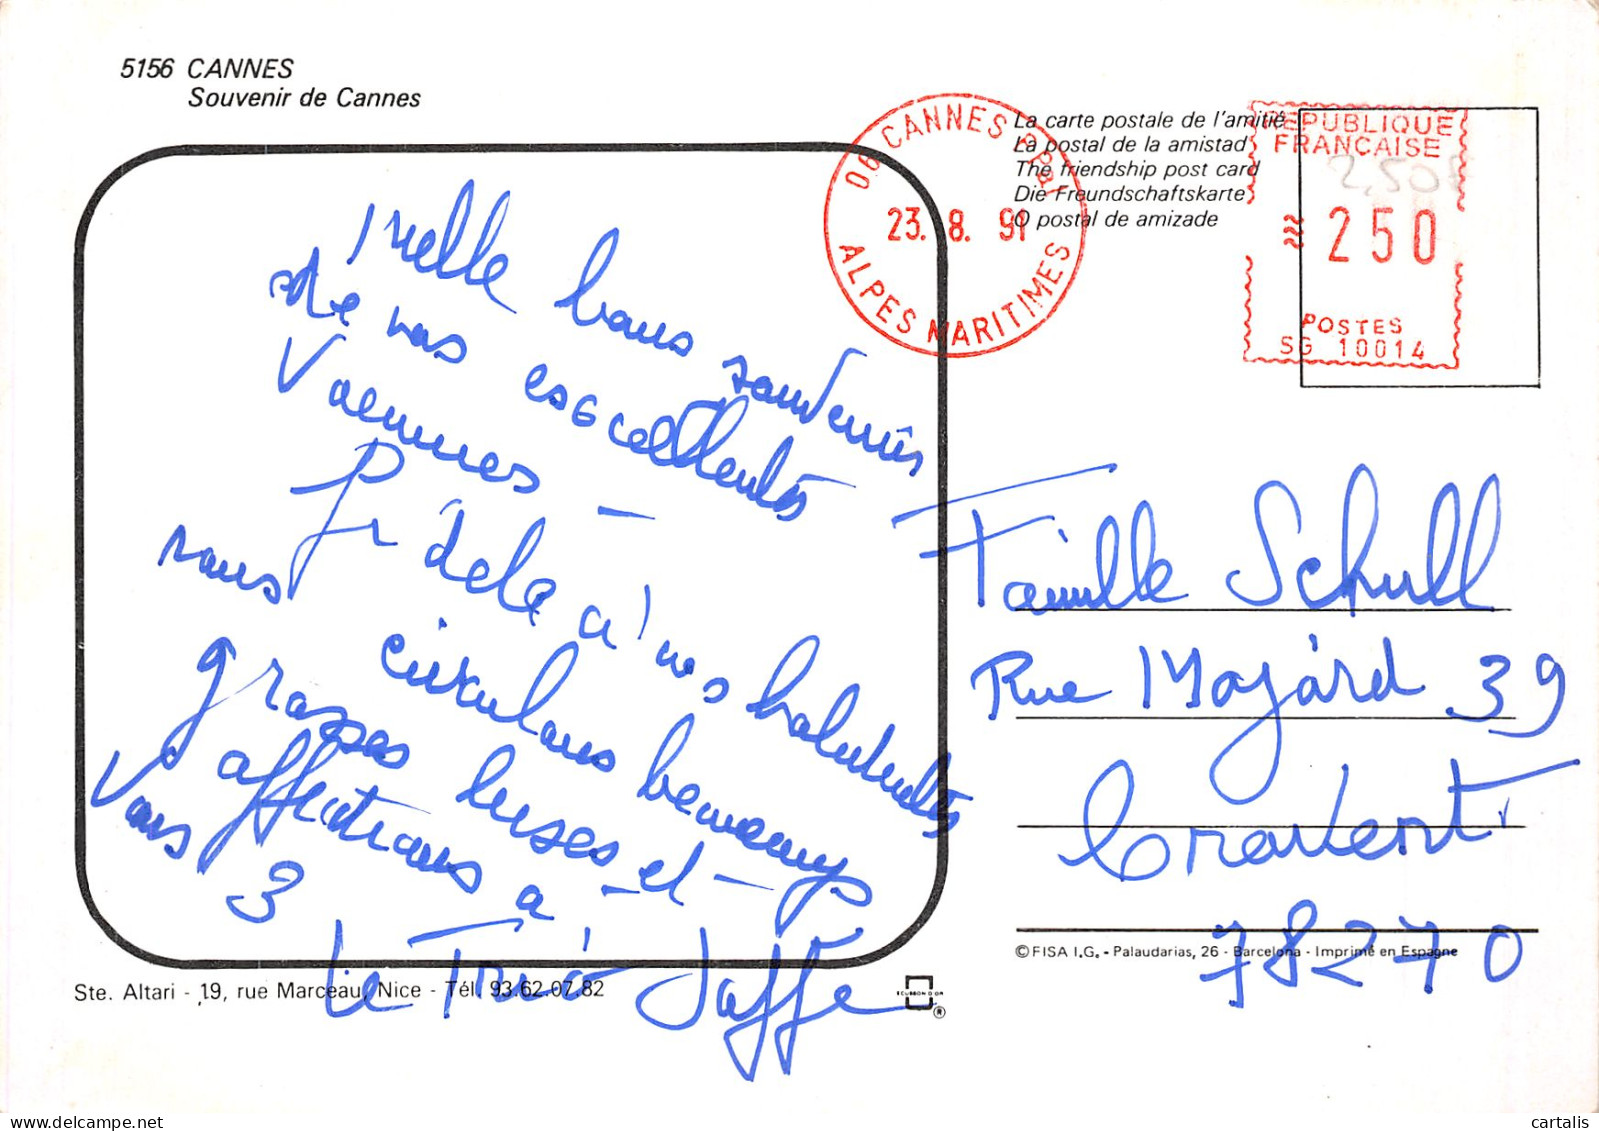 5156 CANNES
Souvenir de Cannes
La carte postale de l'amitié
La postal de la amistad
The friendship post card
Die Freundschaftskarte
O postal de amizade
06 CANNES PPAL
23. 8. 91
ALPES MARITIMES
REPUBLIQUE
FRANCAISE
2,50F
250
POSTES
SG 10014
bons souvenirs
de nos excellentes
Vacances —
Fidèle à nos habitudes
nous circulons beaucoup
grosses bises et
affections à
Vous 3
Le Trio Jaffe
Famille Schull
Rue 39
Cravent
78270
© FISA I.G. - Palaudarias, 26 - Barcelona - Imprimé en Espagne
Ste. Altari - 19, rue Marceau, Nice - Tél. 93.62.07.82
ECUSSON D'OR
®
cartalis